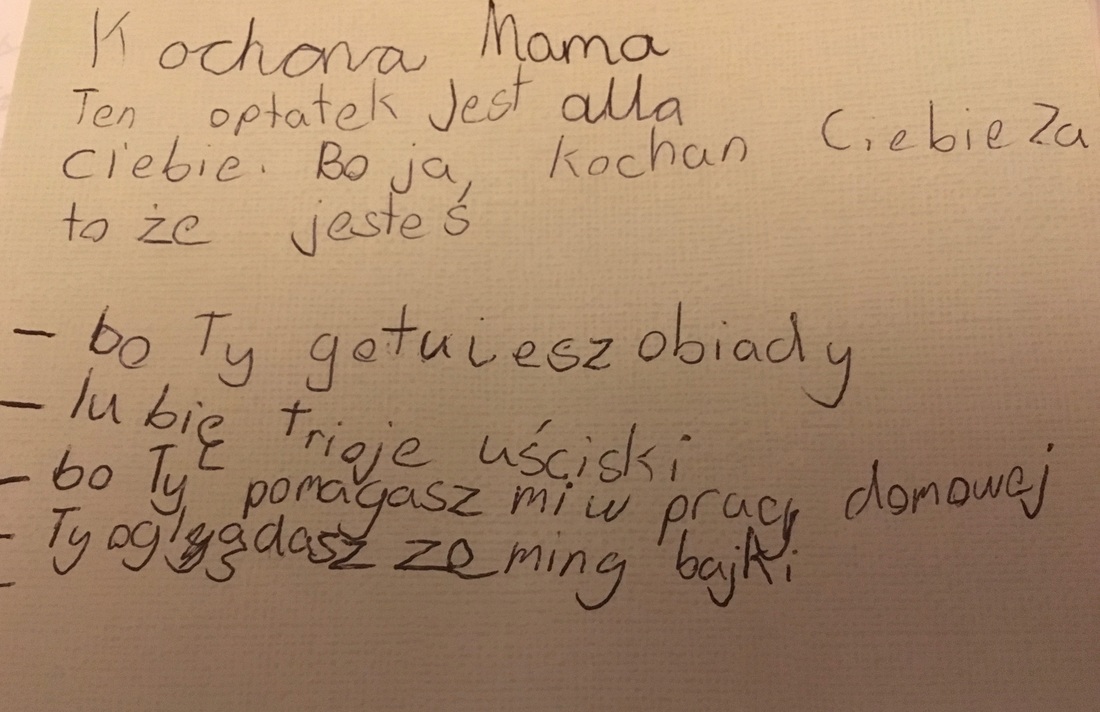 Kochana Mama
Ten opłatek Jest dlla
Ciebie. Bo ja, kochan Ciebie za
to że jesteś
- bo Ty gotuiesz obiady
- lubię trioje uściski
- bo Ty pomagasz mi w pracy domowej
- Ty oglądasz ze ming bajki
-